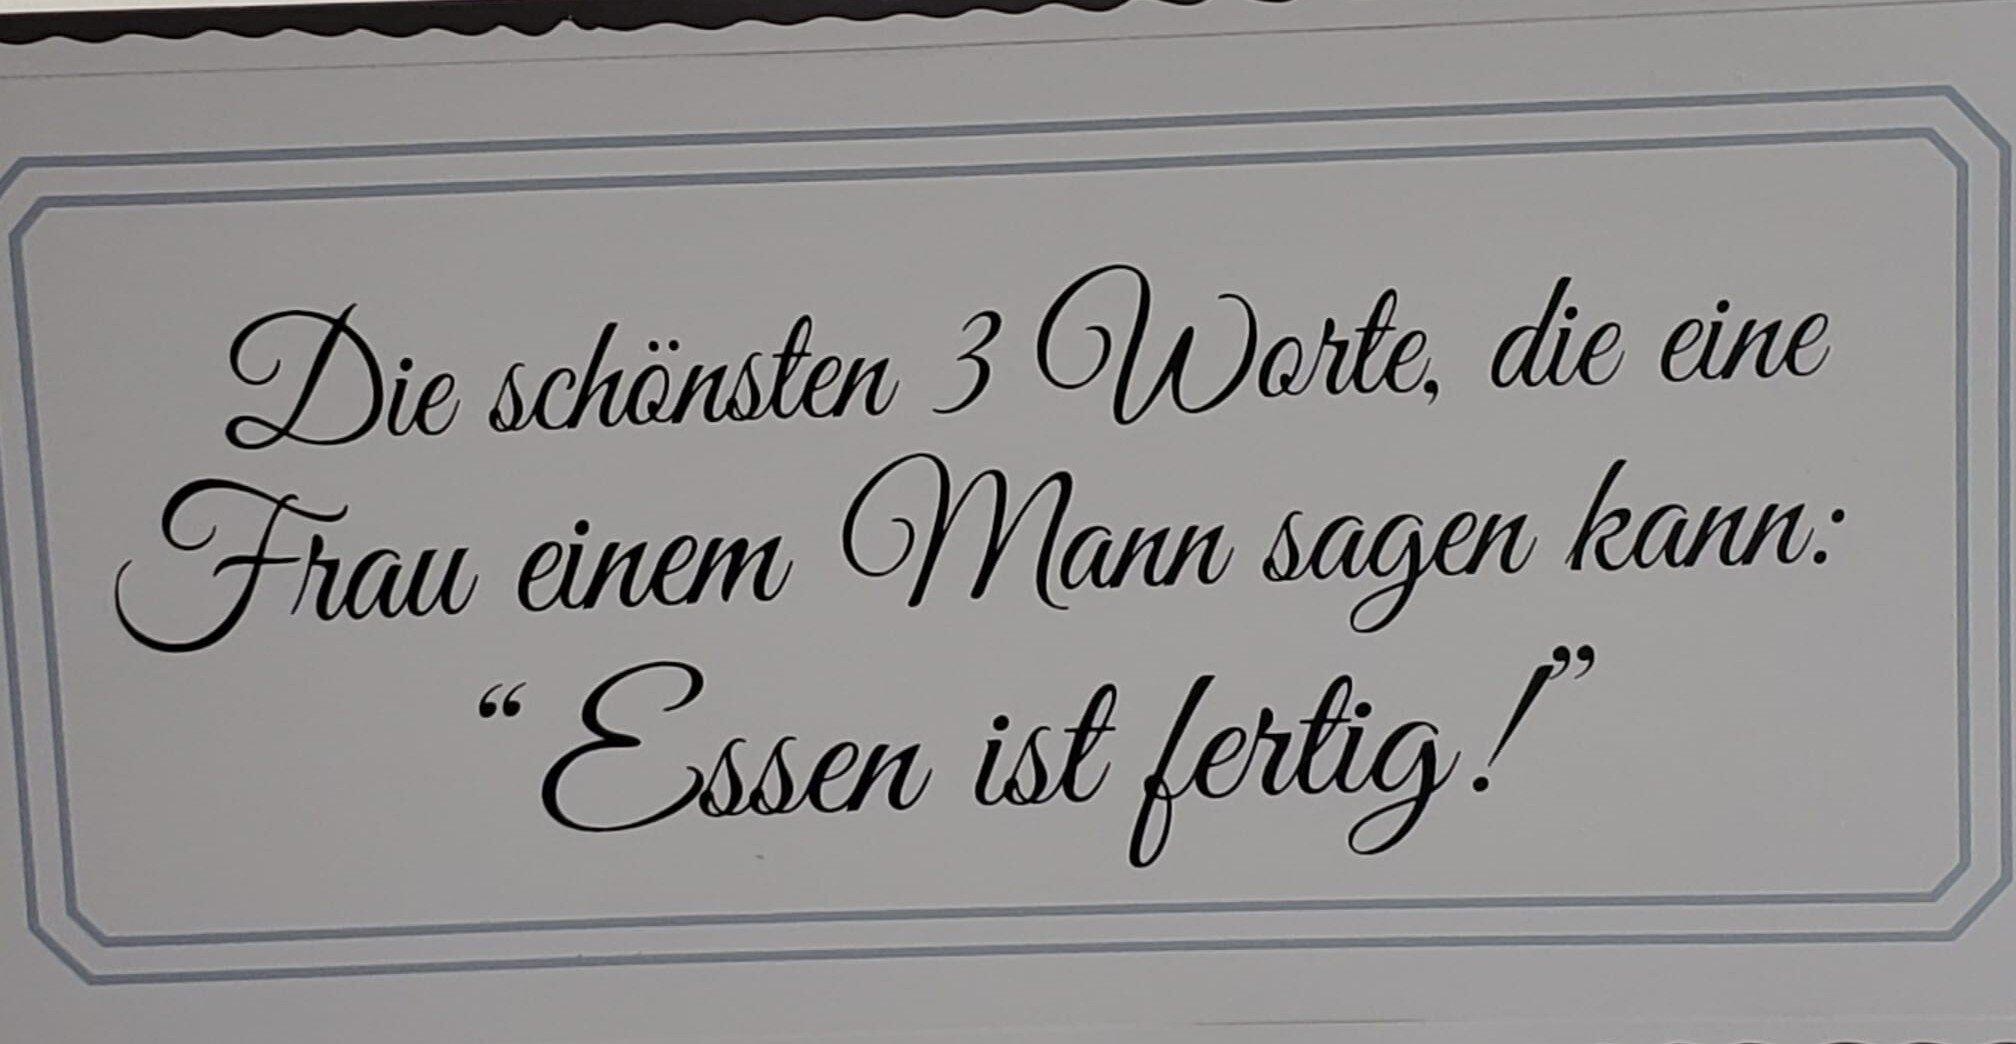 Die schönsten 3 Worte, die eine
Frau einem Mann sagen kann:
“Essen ist fertig!”